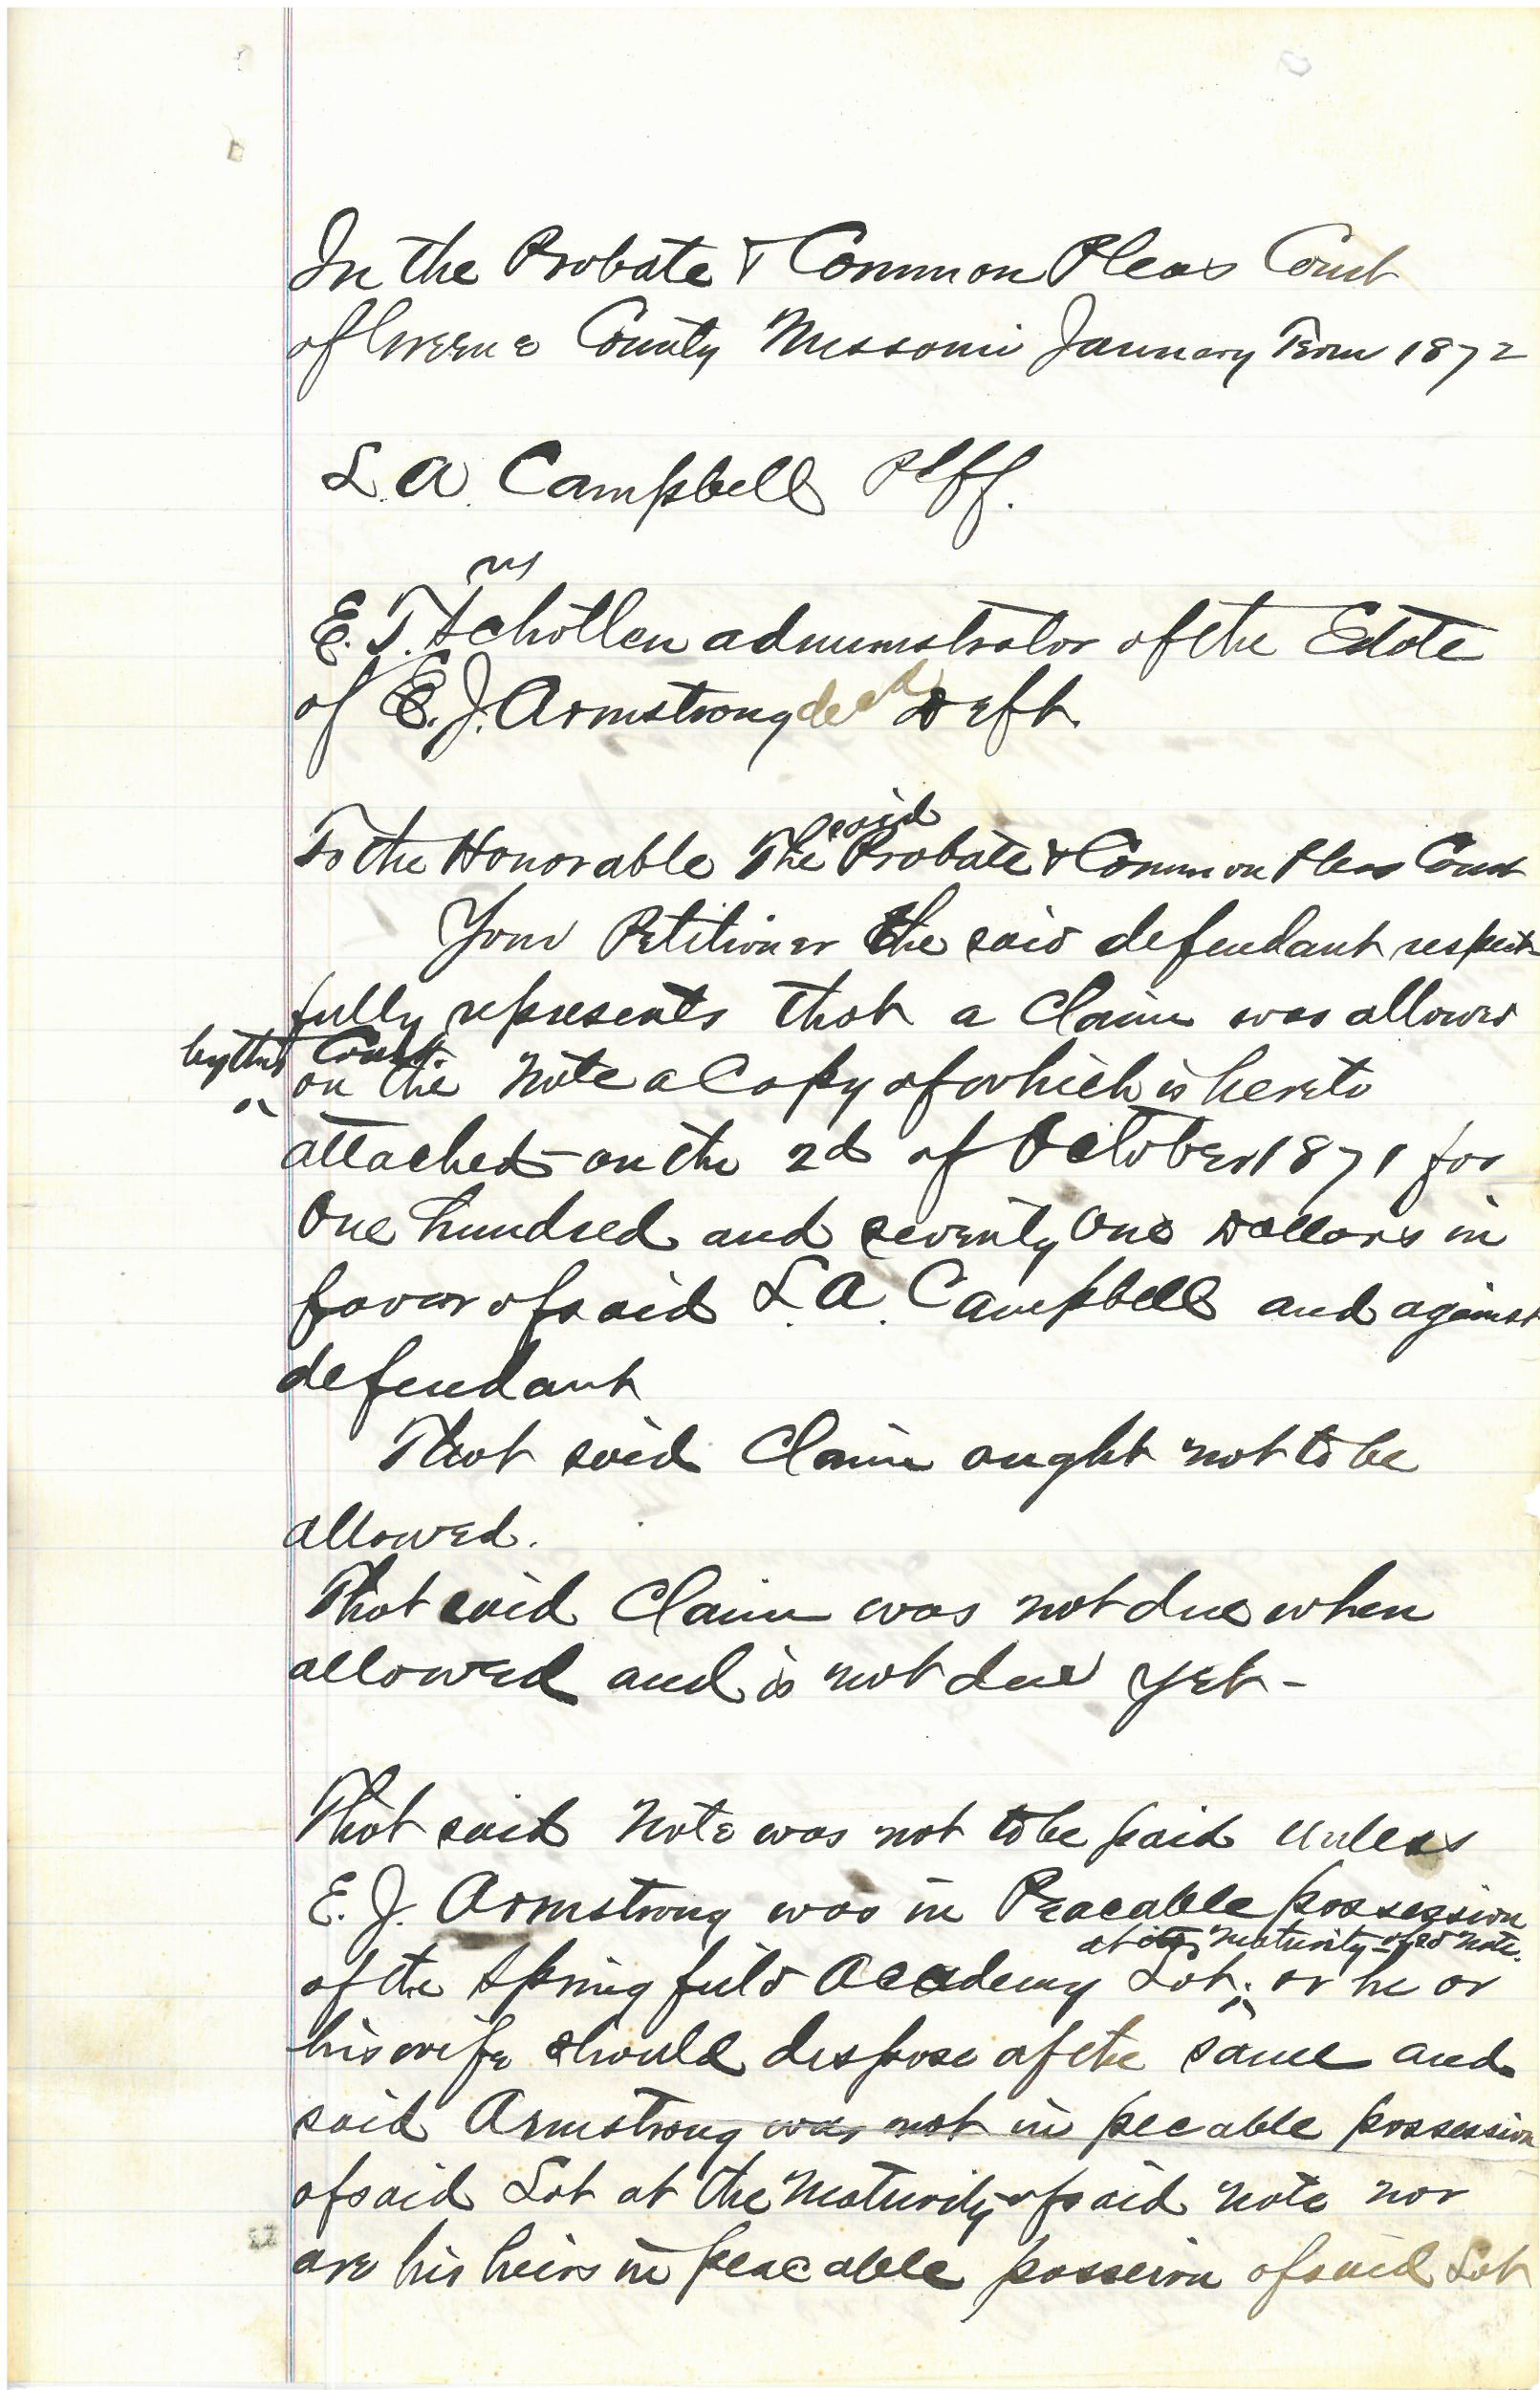 In the Probate & Common Pleas Court
of Greene County Missouri January Term 1872
L. A. Campbell Plff.
vs
E. T. Schotten administrator of the Estate
of E. J. Armstrong decd Deft.
To the Honorable The said Probate & Common Pleas Court
Your Petitioner the said defendant respect
fully represents that a Claim was allowed
by this Court
on the Note a Copy of which is hereto
attached on the 2d of October 1871 for
One hundred and seventy One Dollars in
favor of said L. A. Campbell and against
defendant
That said Claim ought not to be
allowed.
That said Claim was not due when
allowed and is not due yet -
That said Note was not to be paid unless
E. J. Armstrong was in Peacable possession
at maturity of sd Note.
of the Springfield Academy Lot; or he or
his wife should dispose of the same and
said Armstrong was not in pecable possession
of said Lot at the Maturity of said Note nor
are his heirs in peacable possesion of said Lot